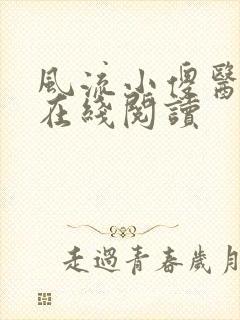 風流小傻醫
在綫閱讀
走過青春歲月